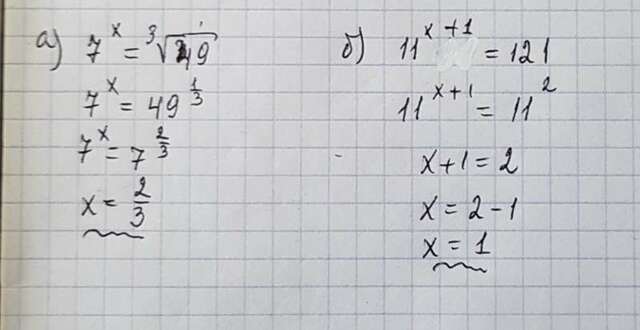 а) 7^x = ∛49
7^x = 49^(1/3)
7^x = 7^(2/3)
x = 2/3
б) 11^(x+1) = 121
11^(x+1) = 11^2
x+1 = 2
x = 2-1
x = 1